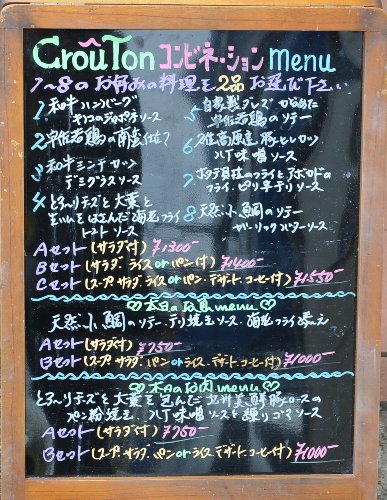 CrouTon コンビネーション Menu
1~8のお好みの料理を2品お選び下さい
1 和牛ハンバーグ
キノコのデュクセルソース
2 宇佐若鶏の南蛮仕立
3 和牛ミンチカツ
デミグラスソース
4 とろ〜りチーズと大葉と
はさんだ海老フライ
トマトソース
5 自家製
宇佐若鶏のソテー
6 豚ヒレカツ
八丁味噌ソース
7 ホタテ貝柱のフライとアボカドの
フライ、ピリ辛チリソース
8 天然小鯛のソテー
ガーリックバターソース
Aセット(サラダ付) ¥1300-
Bセット(サラダ、ライス or パン付) ¥1400-
Cセット(スープ、サラダ、ライス or パン・デザート・コーヒー付) ¥1550-
本日のお魚menu
天然小鯛のソテー、テリ焼玉ソース、海老フライ添え
Aセット(サラダ付) ¥750-
Bセット(スープ、サラダ、パン or ライス、デザート、コーヒー付) ¥1000-
本日のお肉menu
とろ〜りチーズと大葉を包んだ九州産美鮮豚ロースの
パン粉焼き、八丁味噌ソースと練りゴマソース
Aセット(サラダ付) ¥750-
Bセット(スープ、サラダ、パン or ライス、デザート、コーヒー付) ¥1000-